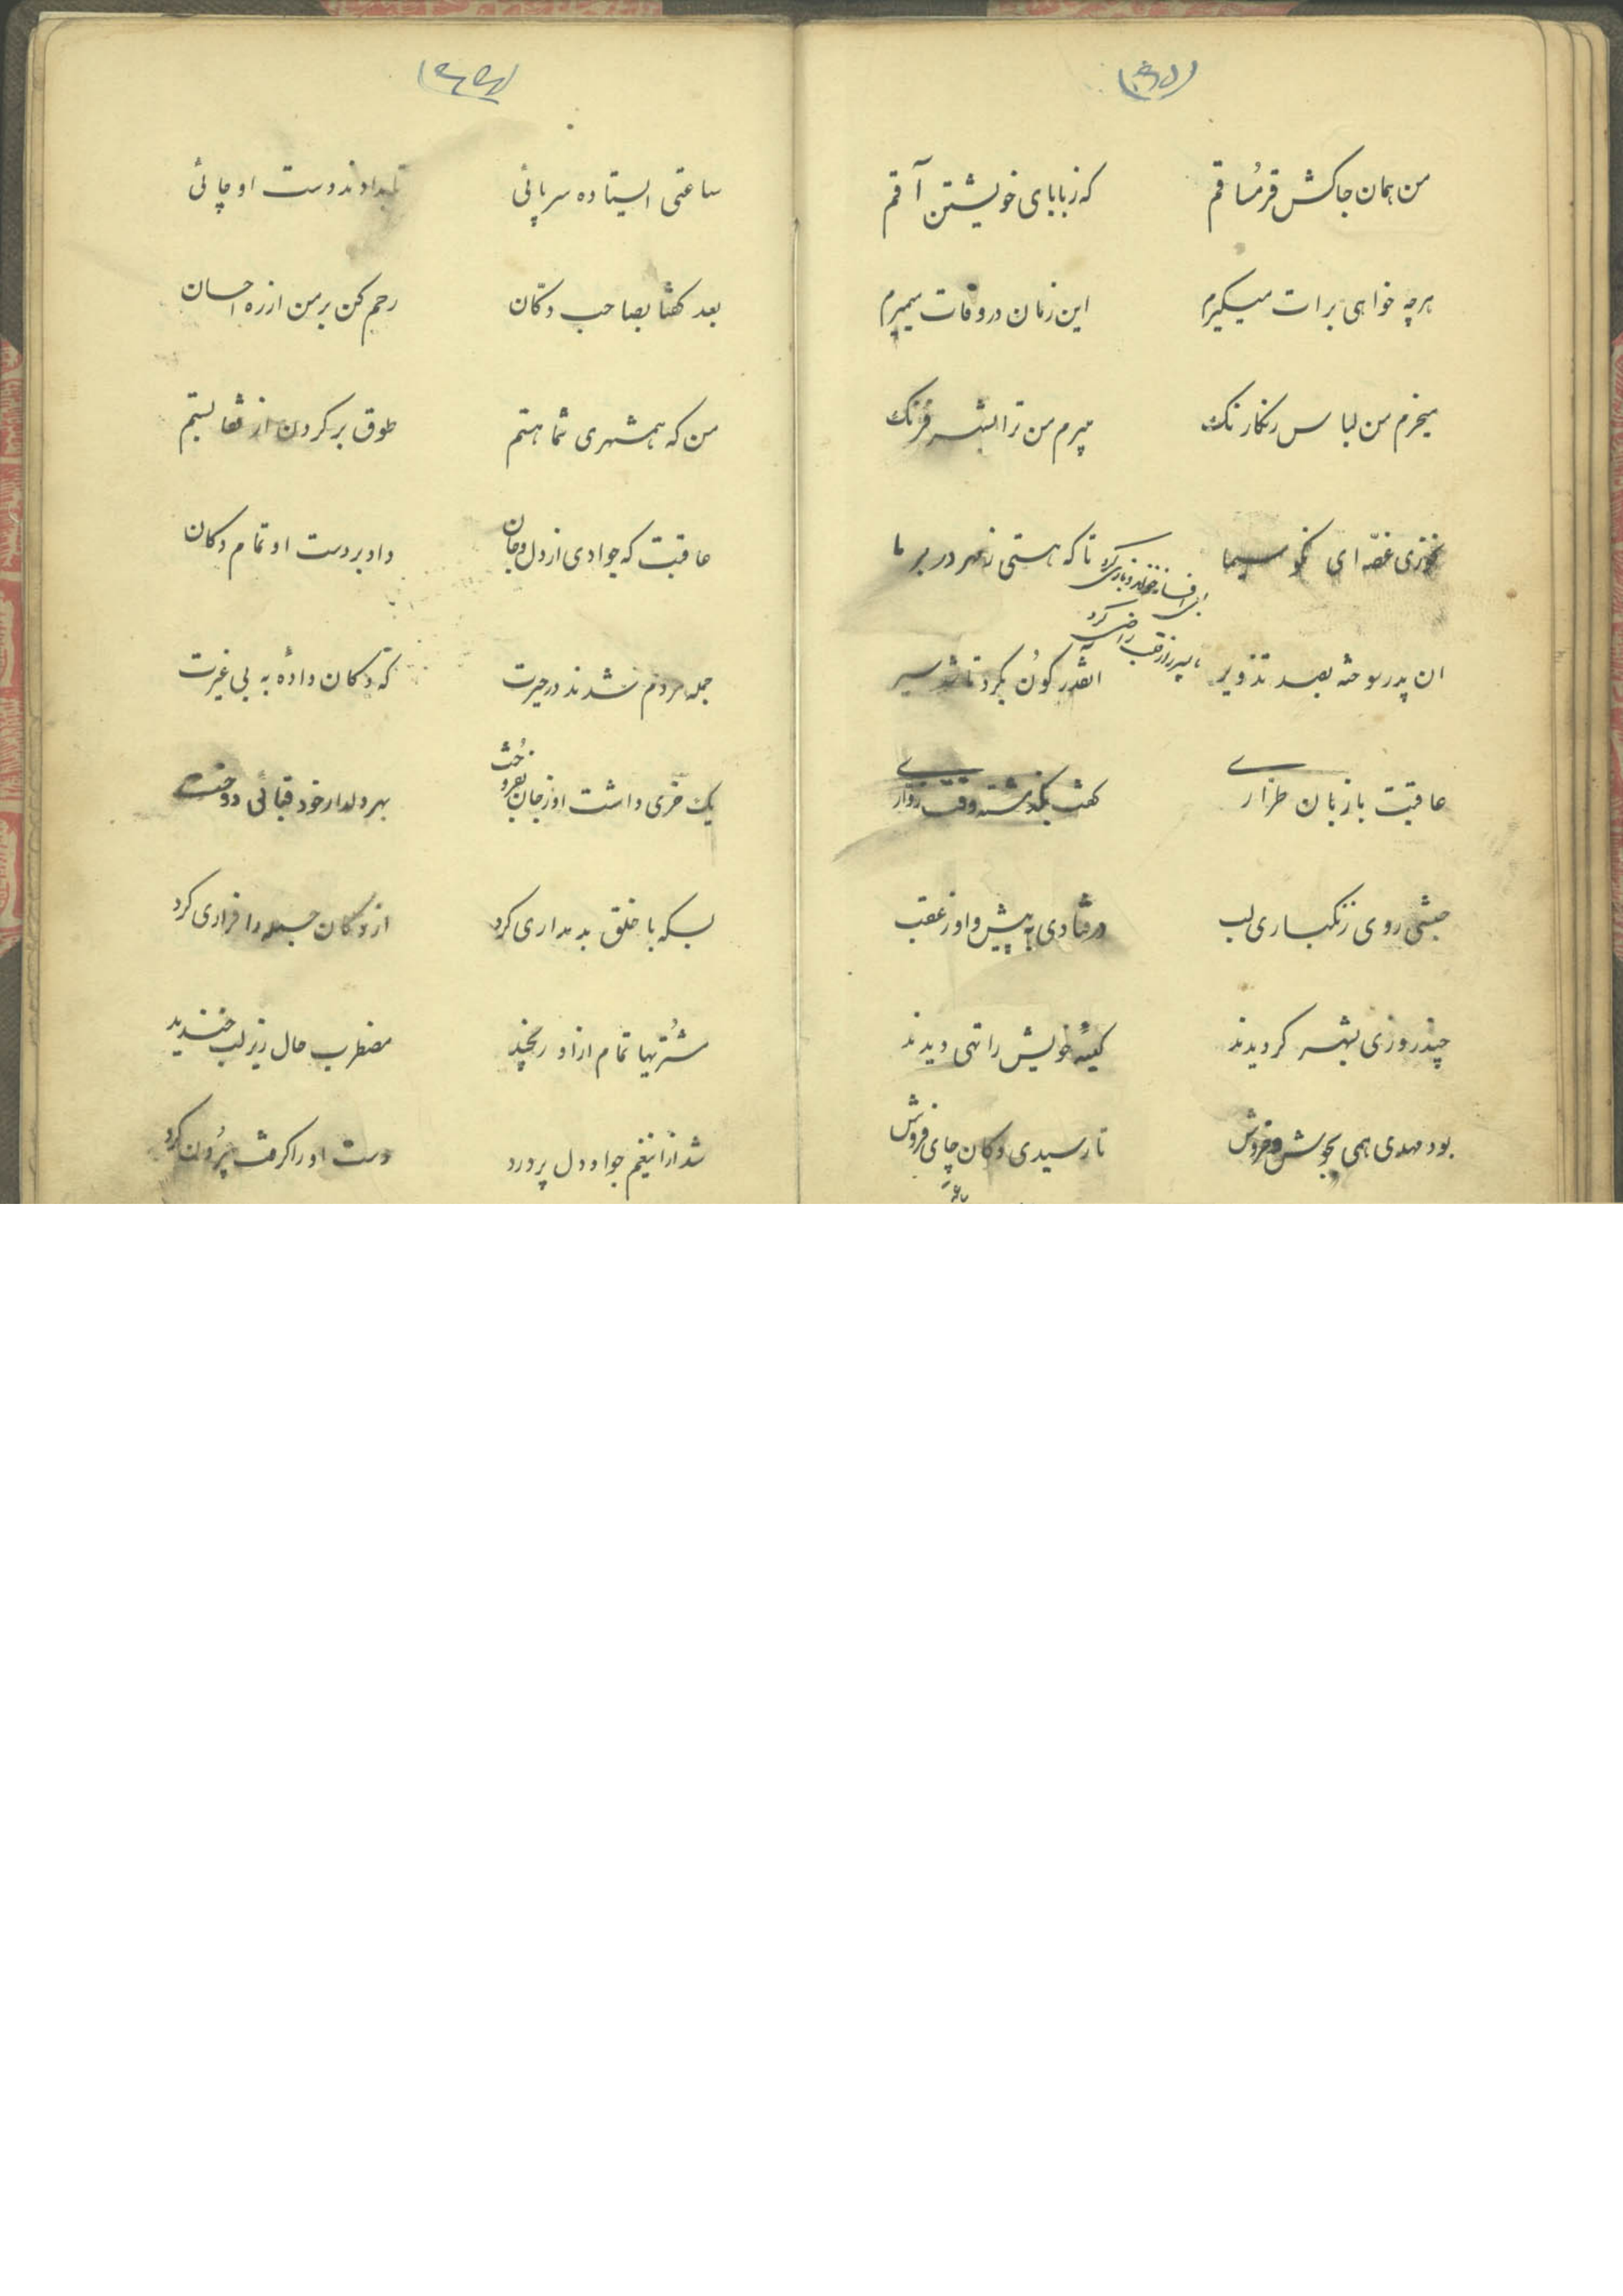 من همان جاکش قرمساقم	که ز بابای خویشتن آقم
هرچه خواهی برات میگیرم	این زمان در وفات میمیرم
میخرم من لباس رنکارنک	میرم من ترا بشهر فرنک
نخوری غصه ای نکو سیما	تا که هستی ز مهر در بر ما
این افسانه خواند و بازی کرد
تا پسر را ز خود راضی کرد
ان پدر سوخته بصد تذویر	انقدر کون بکرد تا شد سیر
عاقبت با زبان طراری	کفت بکذشته وقت زواری
حبشی روی زنکباری لب	درفتادی به پیش و او ز عقب
چند روزی بشهر کردیدند	کیسهٔ خویش را تهی دیدند
بود مهدی همی بجوش و خروش	تا رسیدی دکان چای فروش
ساعتی ایستاده سر پائی	تا بدادند دست او چائی
بعد کفتا بصاحب دکان	رحم کن بر من از ره احسان
من که همشهری شما هستم	طوق بر کردن از شما بستم
عاقبت که جوادی از دل و جان	داد بر دست او تمام دکان
جمله مردم شدند در حیرت	که دکان دادهٔ به بی غیرت
یک خری داشت او ز جان بفروخت	بهر دلدار خود قبائی دوخت
بسکه با خلق بد مداری کرد	از دکان جمله را فراری کرد
مشتریها تمام ازاو رنجید	مضطرب حال زیر لب خندید
شد ازاینغم جواد دل پر درد	دست او را کرفت بیرون کرد